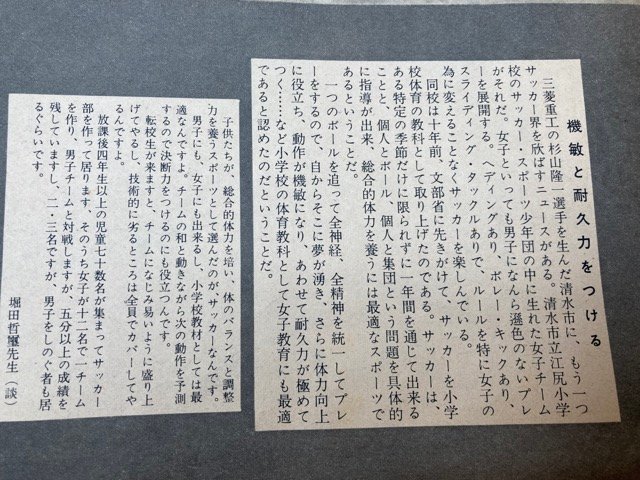 機敏と耐久力をつける
三菱重工の杉山隆一選手を生んだ清水市に、もう一つ
サッカー界を欣ばすニュースがある。清水市立江尻小学
校のサッカー・スポーツ少年団の中に生れた女子チーム
がそれだ。女子といっても男子になんら遜色のないプレ
ーを展開する。ヘディングあり、ボレー・キックあり、
スライディング・タックルありで、ルールを特に女子の
為に変えることなくサッカーを楽しんでいる。
同校は十年前、文部省に先きがけて、サッカーを小学
校体育の教科として取り上げたのである。サッカーは、
ある特定の季節だけに限られずに一年間を通じて出来る
ことと、個人とボール、個人と集団という問題を具体的
に指導が出来、総合的体力を養うには最適なスポーツで
あるということだ。
一つのボールを追って全神経、全精神を統一してプレ
ーをするので、自からそこに夢が湧き、さらに体力向上
に役立ち、動作が機敏になり、あわせて耐久力が極めて
つく……など小学校の体育教科として女子教育にも最適
であると認めたのだということだ。
子供たちが、総合的体力を培い、体のバランスと調整
力を養うスポーツとして選んだのがサッカーなんです。
男子にも、女子にも出来るし、小学校教材としては最
適なんですよ。チームの和と動きながら次の動作を予測
するので決断力をつけるのにも役立つんです。
転校生が来ますと、チームになじみ易いように盛り上
げてやるし、技術的に劣るところは全員でカバーしてや
るんですよ。
放課後四年生以上の児童七十数名が集まってサッカー
部を作って居ります、そのうち女子が十二名で一チーム
を作り、男子チームと対戦しますが、五分以上の成績を
残していますし、二・三名ですが、男子をしのぐ者も居
るぐらいです。
堀田哲璽先生（談）